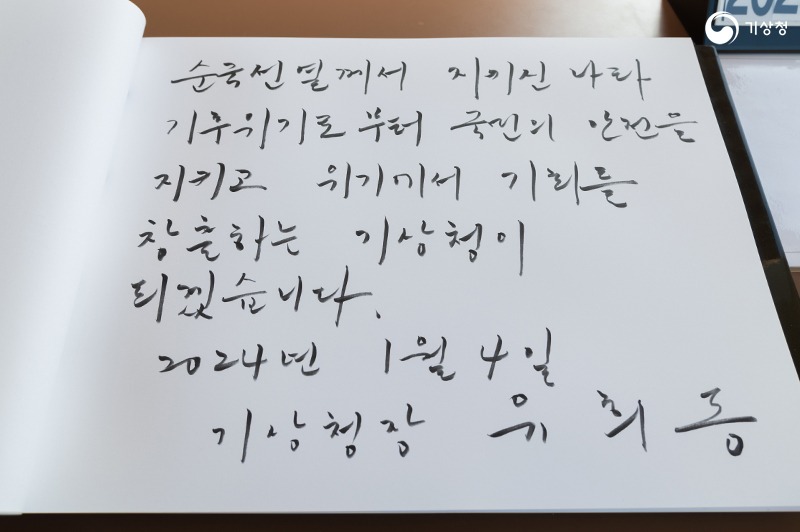 202
기상청
순국선열께서 지키신 나라
기후위기로부터 국민의 안전을
지키고 위기에서 기회를
창출하는 기상청이
되겠습니다.
2024년 1월 4일
기상청장 유희동